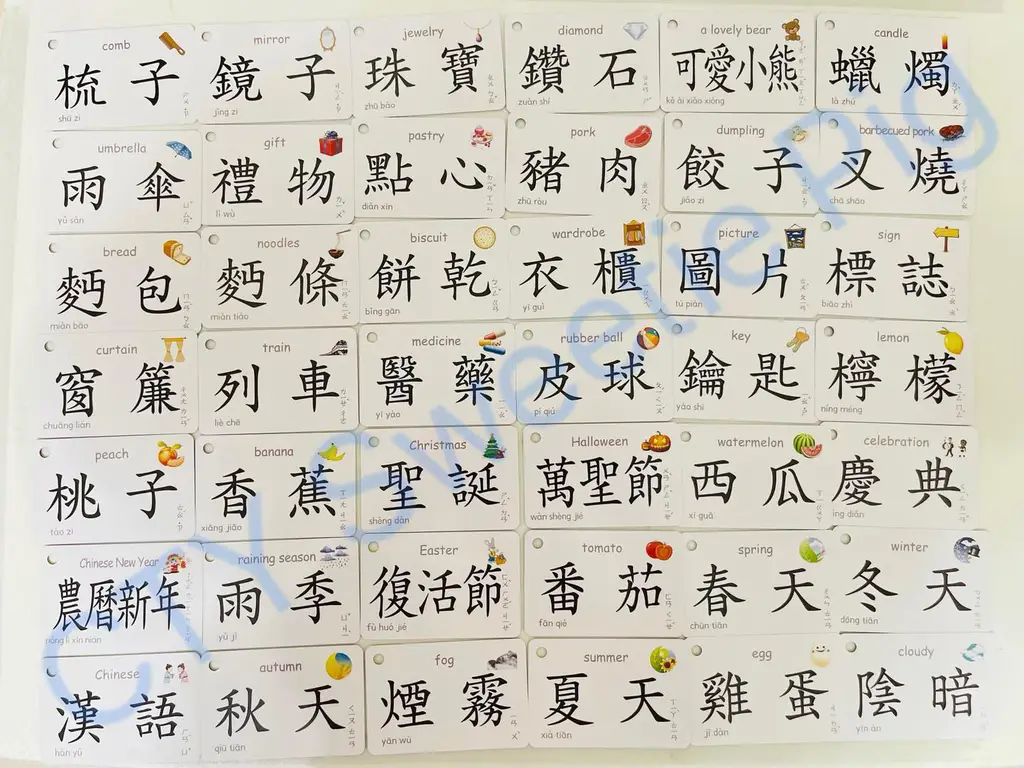 comb
梳子
shū zi
mirror
鏡子
jìng zi
jewelry
珠寶
zhū bǎo
diamond
鑽石
zuàn shí
a lovely bear
可愛小熊
kě ài xiǎo xióng
candle
蠟燭
là zhú
umbrella
雨傘
yǔ sǎn
gift
禮物
lǐ wù
pastry
點心
diǎn xīn
pork
豬肉
zhū ròu
dumpling
餃子
jiǎo zi
barbecued pork
叉燒
chā shāo
bread
麪包
miàn bāo
noodles
麪條
miàn tiáo
biscuit
餅乾
bǐng gān
wardrobe
衣櫃
yī guì
picture
圖片
tú piàn
sign
標誌
biāo zhì
curtain
窗簾
chuāng lián
train
列車
liè chē
medicine
醫藥
yī yào
rubber ball
皮球
pí qiú
key
鑰匙
yào shi
lemon
檸檬
níng méng
peach
桃子
táo zi
banana
香蕉
xiāng jiāo
Christmas
聖誕
shèng dàn
Halloween
萬聖節
wàn shèng jié
watermelon
西瓜
xī guā
celebration
慶典
ìng diǎn
Chinese New Year
農曆新年
nóng lì xīn nián
raining season
雨季
yǔ jì
Easter
復活節
fù huó jié
tomato
番茄
fān qié
spring
春天
chūn tiān
winter
冬天
dōng tiān
Chinese
漢語
hàn yǔ
autumn
秋天
qiū tiān
fog
煙霧
yān wù
summer
夏天
xià tiān
egg
雞蛋
jī dàn
cloudy
陰暗
yīn àn
CTYSweetie.Pig